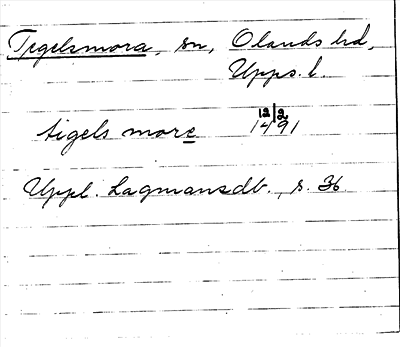 Tegelsmora, sn, Olands hd,
Upps. l.
tigels more 12/2 1491
Uppl. Lagmansdb., s. 36.